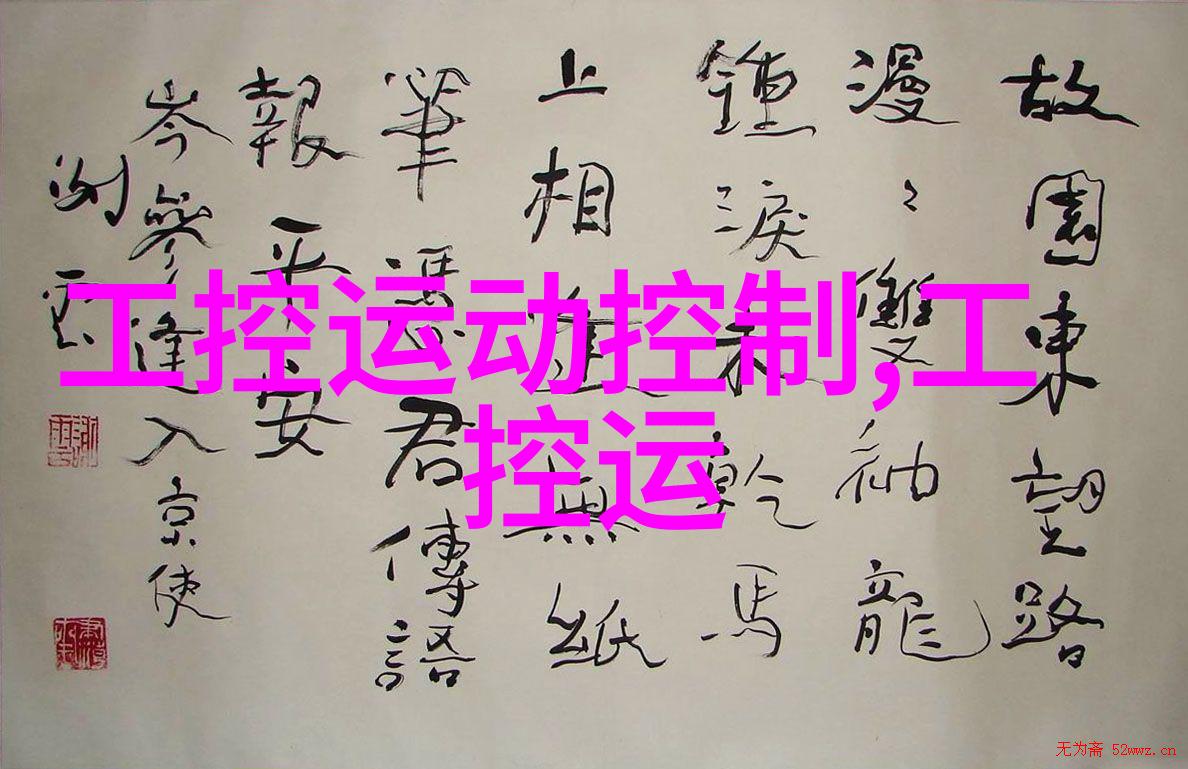 故園東望路
漫〻雙袖龍
鍾淚未乾馬
上相逢無紙
筆憑君傳語
報平安
岑參逢入京使
工控运动控制,工
控运
无为斋 52wwz.cn